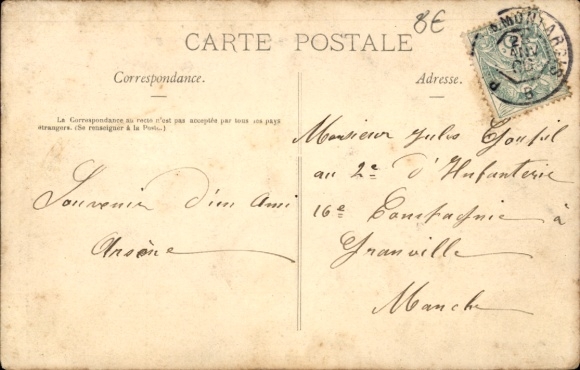 8€
CARTE POSTALE
Correspondance.
Adresse.
La Correspondance au recto n'est pas acceptée par tous les pays
étrangers. (Se renseigner à la Poste.)
Monsieur Jules
au 2e d'Infanterie
16e Compagnie à
Granville
Manche
Souvenir d'un Ami
Arsène